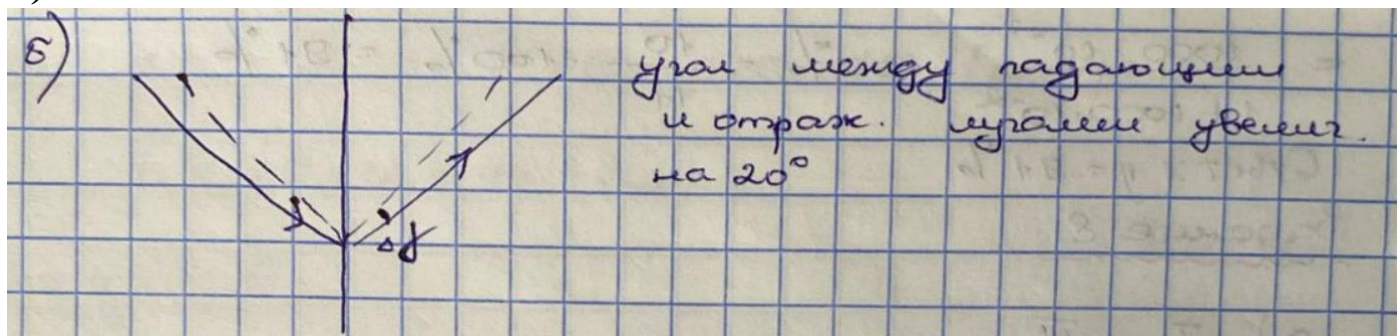 б)
угол между падающим
и отраж. лучами увелич.
на 20°
Δγ